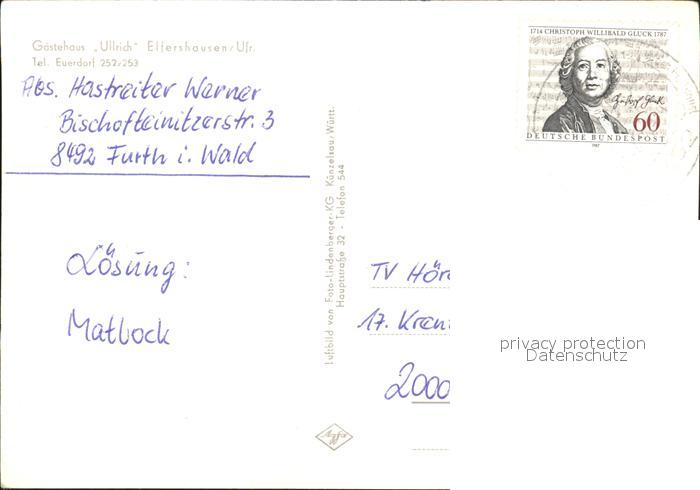 Gästehaus „Ullrich" Elfershausen/Ufr.
Tel. Euerdorf 252/253
Abs. Hastreiter Werner
Bischofteinitzerstr. 3
8492 Furth i. Wald
Lösung:
Matlock
Luftbild von Foto-Lindenberger-KG Künzelsau/Württ.
Hauptstraße 32 - Telefon 544
Agfa
1714 CHRISTOPH WILLIBALD GLUCK 1787
60
DEUTSCHE BUNDESPOST
1987
TV Hör
17. Kran
2000
privacy protection
Datenschutz